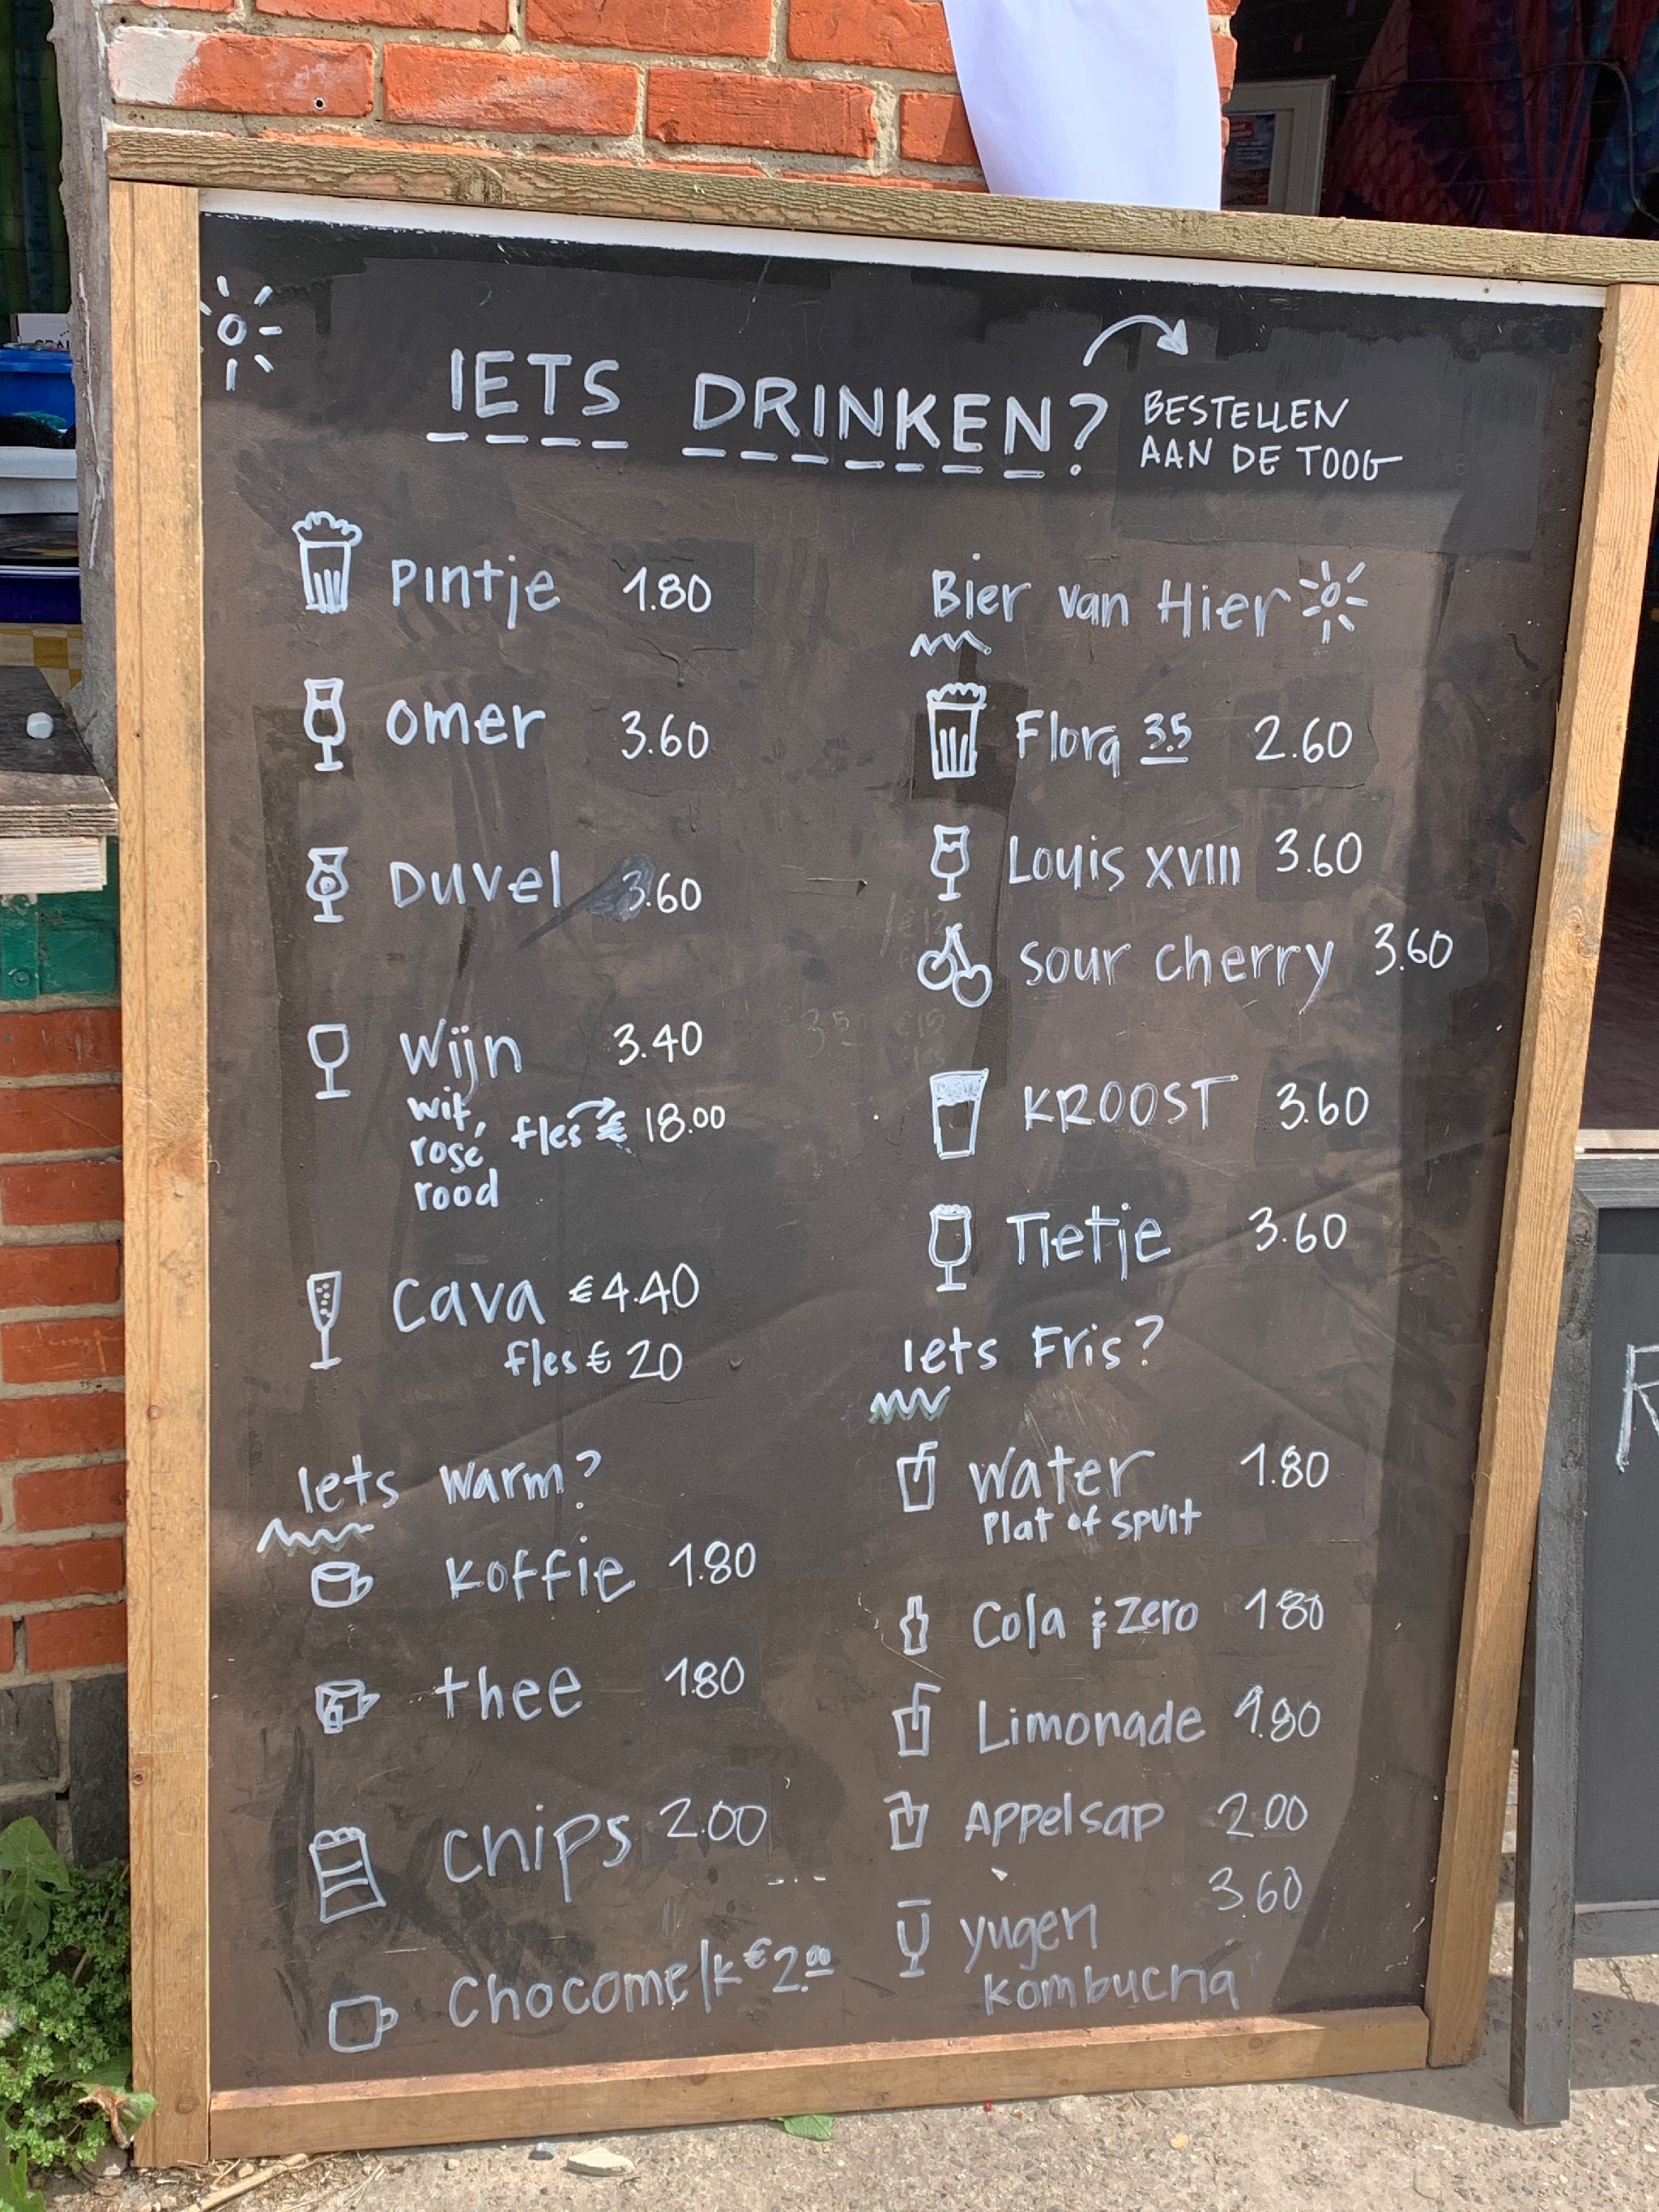 IETS DRINKEN?
BESTELLEN
AAN DE TOOG
Pintje 1.80
omer 3.60
Duvel 3.60
Wijn 3.40
wit,
rosé
fles € 18.00
rood
Cava €4.40
fles € 20
Iets warm?
koffie 1.80
thee 1.80
chips 2.00
Chocomelk €2.00
Bier van Hier
Flora 3.5 2.60
Louis XVIII 3.60
sour cherry 3.60
KROOST 3.60
Tietje 3.60
Iets Fris?
water 1.80
Plat of spuit
Cola & zero 1.80
Limonade 1.80
Appelsap 2.00
3.60
yugen
kombucha